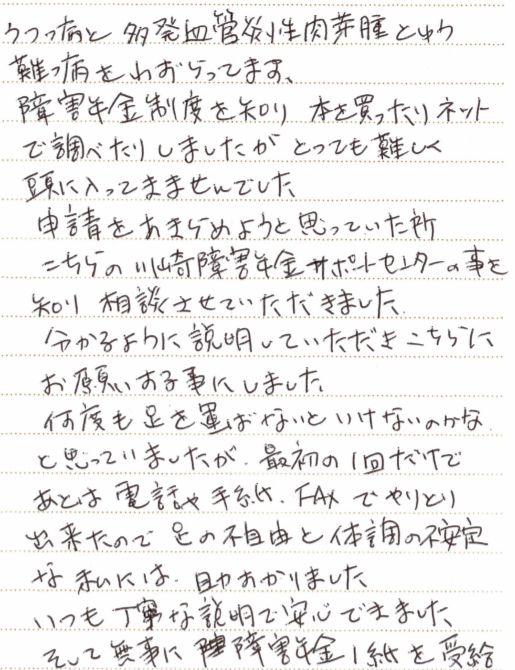 うつっ病と 多発血管炎性肉芽腫とゆう
難っ病をわずらってます、
障害年金制度を知り 本を買ったりネット
で調べたりしましたが とっても難しく
頭に入ってきませんでした
申請をあきらめようと思っていた所
こちらの川崎障害年金サポートセンターの事を
知り 相談させていただきました
分かるように説明していただき こちらに
お願いする事にしました
何度も足を運ばないといけないのかな
と思っていましたが、最初の1回だけで
あとは 電話や手紙、FAXでやりとり
出来たので 足の不自由と体調の不安定
な私には、助かりました
いつも丁寧な説明で安心できました
そして無事に 障害年金1級を受給